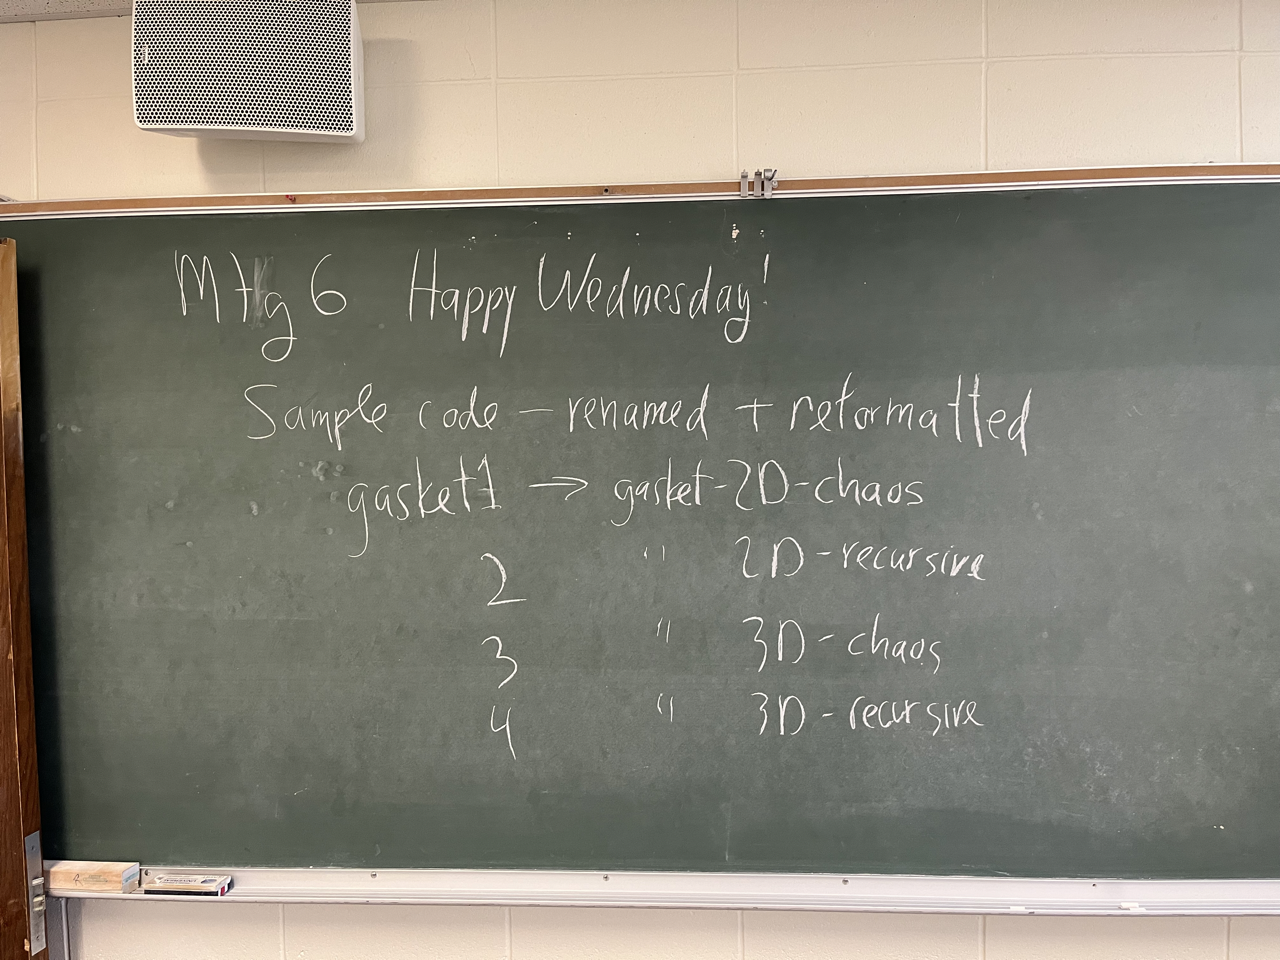 Mtg 6 Happy Wednesday!
Sample code - renamed + reformatted
gasket1 → gasket-2D-chaos
2 " 2D-recursive
3 " 3D-chaos
4 " 3D-recursive